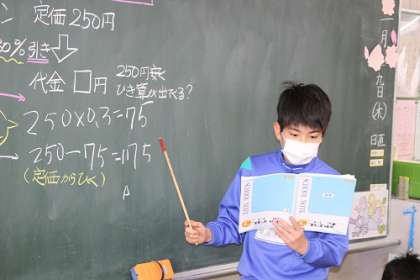 ン 定価250円
30%引き
代金 □円
250円安く
ひき算が出てる?
250×0.3=75
250-75=175
(定価からひく)
A
一月九日(木)
日直
SCHOOL NOTE
SCHOOL NOTE